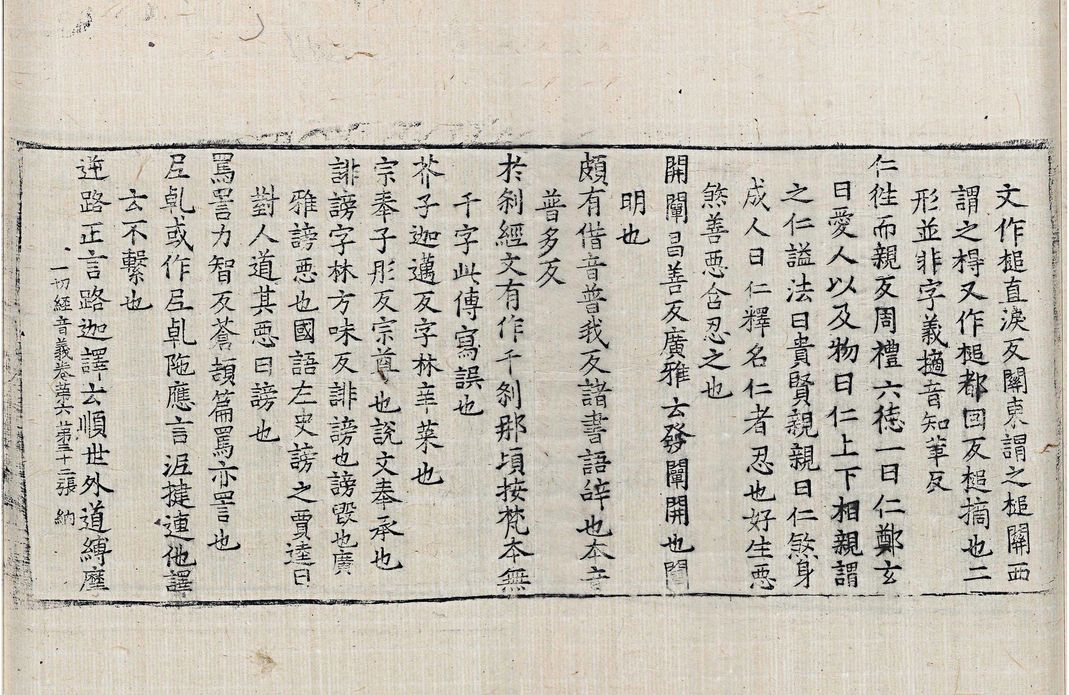 文作槌直淚反關東謂之槌關西
謂之㭙又作槌都囬反槌擿也二
形並非字義擿音知革反
仁徃而親反周禮六徳一曰仁鄭玄
曰愛人以及物曰仁上下相親謂
之仁謚法曰貴賢親親曰仁煞身
成人曰仁釋名仁者忍也好生惡
煞善惡含忍之也
開闡昌善反廣雅云發闡開也闡
明也
頗有借音普我反諸書語辞也本音
普多反
於刹經文有作千刹那頃按梵本無
千字此傳寫誤也
芥子迦邁反字林辛菜也
宗奉子彤反宗尊也說文奉承也
誹謗字林方味反誹謗也謗毀也廣
雅謗惡也國語左史謗之賈逵曰
對人道其惡曰謗也
罵詈力智反蒼頡篇罵亦詈也
尼乹或作尼乹陁應言泥揵連他譯
云不繫也
逆路正言路迦譯云順世外道縛麈
一切經音義卷苐六 苐三十三張 納